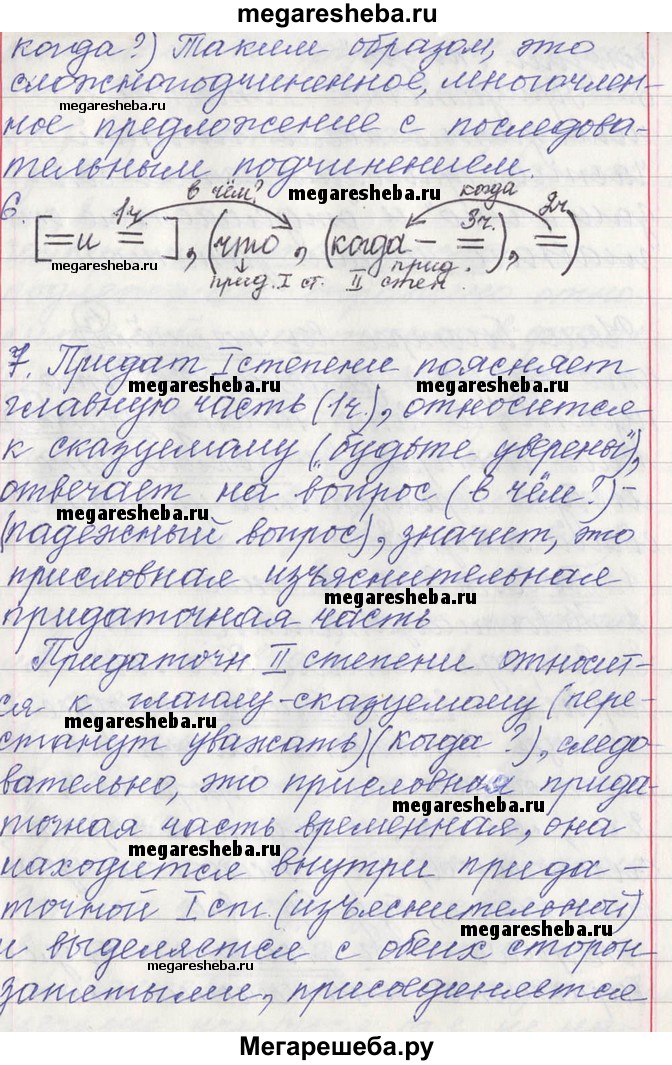 megaresheba.ru
когда?) Таким образом, это
сложноподчиненное, многочлен-
megaresheba.ru
ное предложение с последова-
тельным подчинением.
megaresheba.ru
6. 1ч. в чём? когда 3ч. 2ч.
[= и =], (что, (когда - =), =)
megaresheba.ru
прид. I ст. прид. II степ.
7. Придат I степени поясняет
megaresheba.ru megaresheba.ru
главную часть (1ч.), относится
к сказуемому („будьте уверены"),
отвечает на вопрос (в чём?) -
megaresheba.ru
(падежный вопрос), значит, это
присловная изъяснительная
megaresheba.ru
придаточная часть
Придаточн. II степени относит-
ся к глаголу-сказуемому (пере-
megaresheba.ru
станут уважать) (когда?), следо-
вательно, это присловная прида-
megaresheba.ru
точная часть временная, она
megaresheba.ru
находится внутри прида-
точной I ст. (изъяснительной)
и выделяется с обеих сторон
megaresheba.ru
запятыми, присоединяется
megaresheba.ru
Мегарешеба.ру